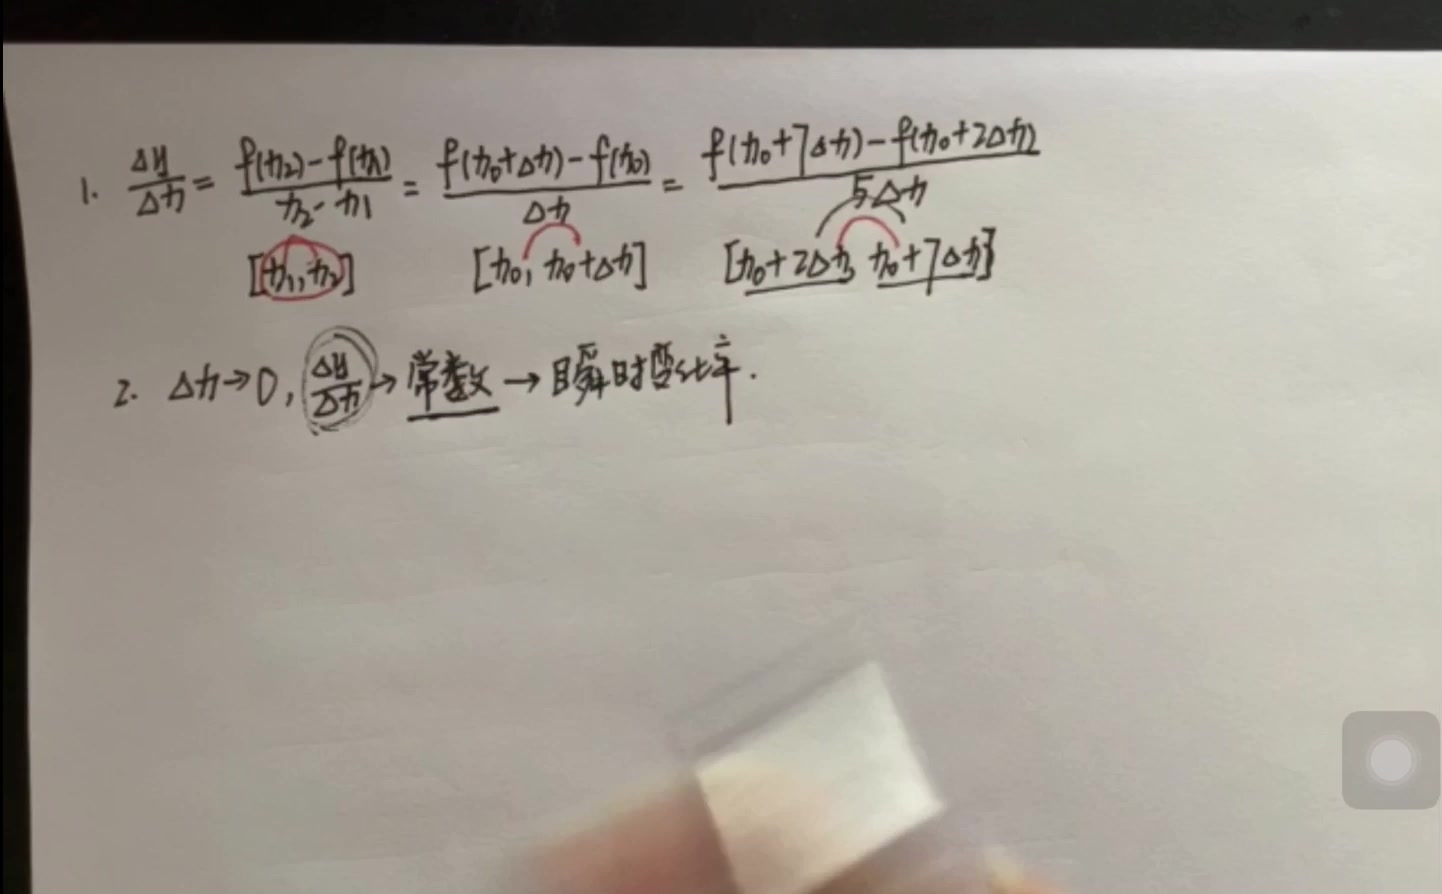 1. Δy/Δx = (f(x₂)-f(x₁))/(x₂-x₁) = (f(x₀+Δx)-f(x₀))/Δx = (f(x₀+7Δx)-f(x₀+2Δx))/5Δx
[x₁,x₂] [x₀, x₀+Δx] [x₀+2Δx, x₀+7Δx]
2. Δx→0, Δy/Δx → 常数 → 瞬时变化率.